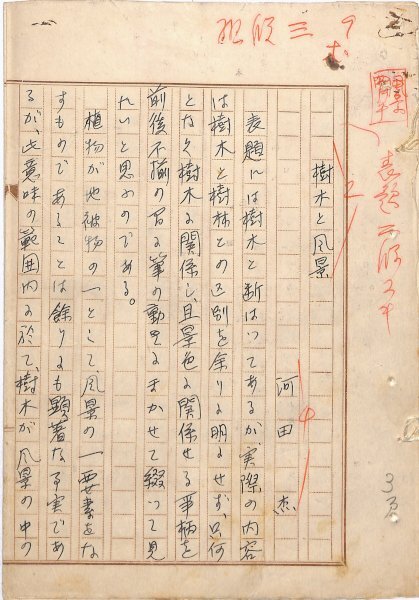 樹木と風景
河田杰
表題には樹木と断はつてあるが、実際の内容
は樹木と樹林との区別を余りに明にせず、只何
となく樹木に関係し、且景色に関係せる事柄を
前後不揃のまゝ筆の動きにまかせて綴つて見
たいと思ふのである。
植物が地被物の一として風景の一要素をな
すものであることは余りにも顕著なる事実であ
るが、此意味の範囲内に於て、樹木が風景の中の